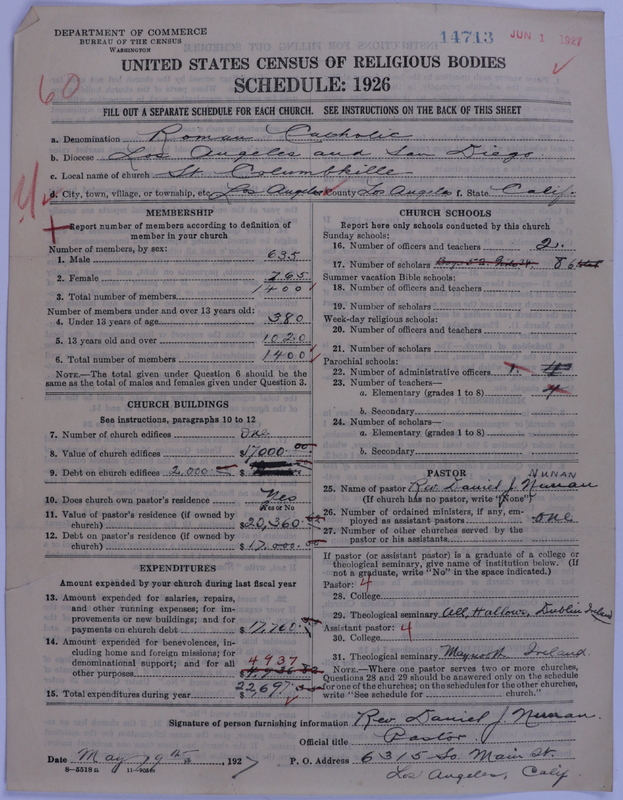 DEPARTMENT OF COMMERCE
BUREAU OF THE CENSUS
WASHINGTON
14713
JUN 1 1927
UNITED STATES CENSUS OF RELIGIOUS BODIES
SCHEDULE: 1926
60
FILL OUT A SEPARATE SCHEDULE FOR EACH CHURCH. SEE INSTRUCTIONS ON THE BACK OF THIS SHEET
a. Denomination Roman Catholic
b. Diocese Los Angeles and San Diego
c. Local name of church St. Columbkille
d. City, town, village, or township, etc. Los Angeles County Los Angeles f. State Calif.
MEMBERSHIP
Report number of members according to definition of
member in your church
Number of members, by sex:
1. Male 635
2. Female 765
3. Total number of members 1400
Number of members under and over 13 years old:
4. Under 13 years of age 380
5. 13 years old and over 1020
6. Total number of members 1400
NOTE.—The total given under Question 6 should be
same as the total of males and females given under Question 3.
CHURCH BUILDINGS
See instructions, paragraphs 10 to 12
7. Number of church edifices One
8. Value of church edifices $17000.00
9. Debt on church edifices 2,000 $
10. Does church own pastor's residence Yes
Yes or No
11. Value of pastor's residence (if owned by
church) $20,360.00
12. Debt on pastor's residence (if owned by
church) $17,000.00
EXPENDITURES
Amount expended by your church during last fiscal year
13. Amount expended for salaries, repairs,
and other running expenses; for im-
provements or new buildings; and for
payments on church debt $17,760.
14. Amount expended for benevolences, in-
cluding home and foreign missions; for
denominational support; and for all
other purposes 4937
15. Total expenditures during year $22,697.
CHURCH SCHOOLS
Report here only schools conducted by this church
Sunday schools:
16. Number of officers and teachers 2.
17. Number of scholars 86
Summer vacation Bible schools:
18. Number of officers and teachers
19. Number of scholars
Week-day religious schools:
20. Number of officers and teachers
21. Number of scholars
Parochial schools:
22. Number of administrative officers 1.
23. Number of teachers—
a. Elementary (grades 1 to 8) 4
b. Secondary
24. Number of scholars—
a. Elementary (grades 1 to 8)
b. Secondary
PASTOR
NUNAN
25. Name of pastor Rev. Daniel J. Nunan
(If church has no pastor, write "None")
26. Number of ordained ministers, if any, em-
ployed as assistant pastors one
27. Number of other churches served by the
pastor or his assistants
If pastor (or assistant pastor) is a graduate of a college or
theological seminary, give name of institution below. (If
not a graduate, write "No" in the space indicated.)
Pastor: 4
28. College
29. Theological seminary All Hallows, Dublin Ireland
Assistant pastor: 4
30. College
31. Theological seminary Maynooth Ireland.
NOTE.—Where one pastor serves two or more churches,
Questions 28 and 29 should be answered only on the schedule
for one of the churches; on the schedules for the other churches,
write "See schedule for church."
Signature of person furnishing information Rev. Daniel J. Nunan.
Official title Pastor.
Date May 19th, 1927
P. O. Address 6315 So. Main St.
8—5518a
Los Angeles, Calif.